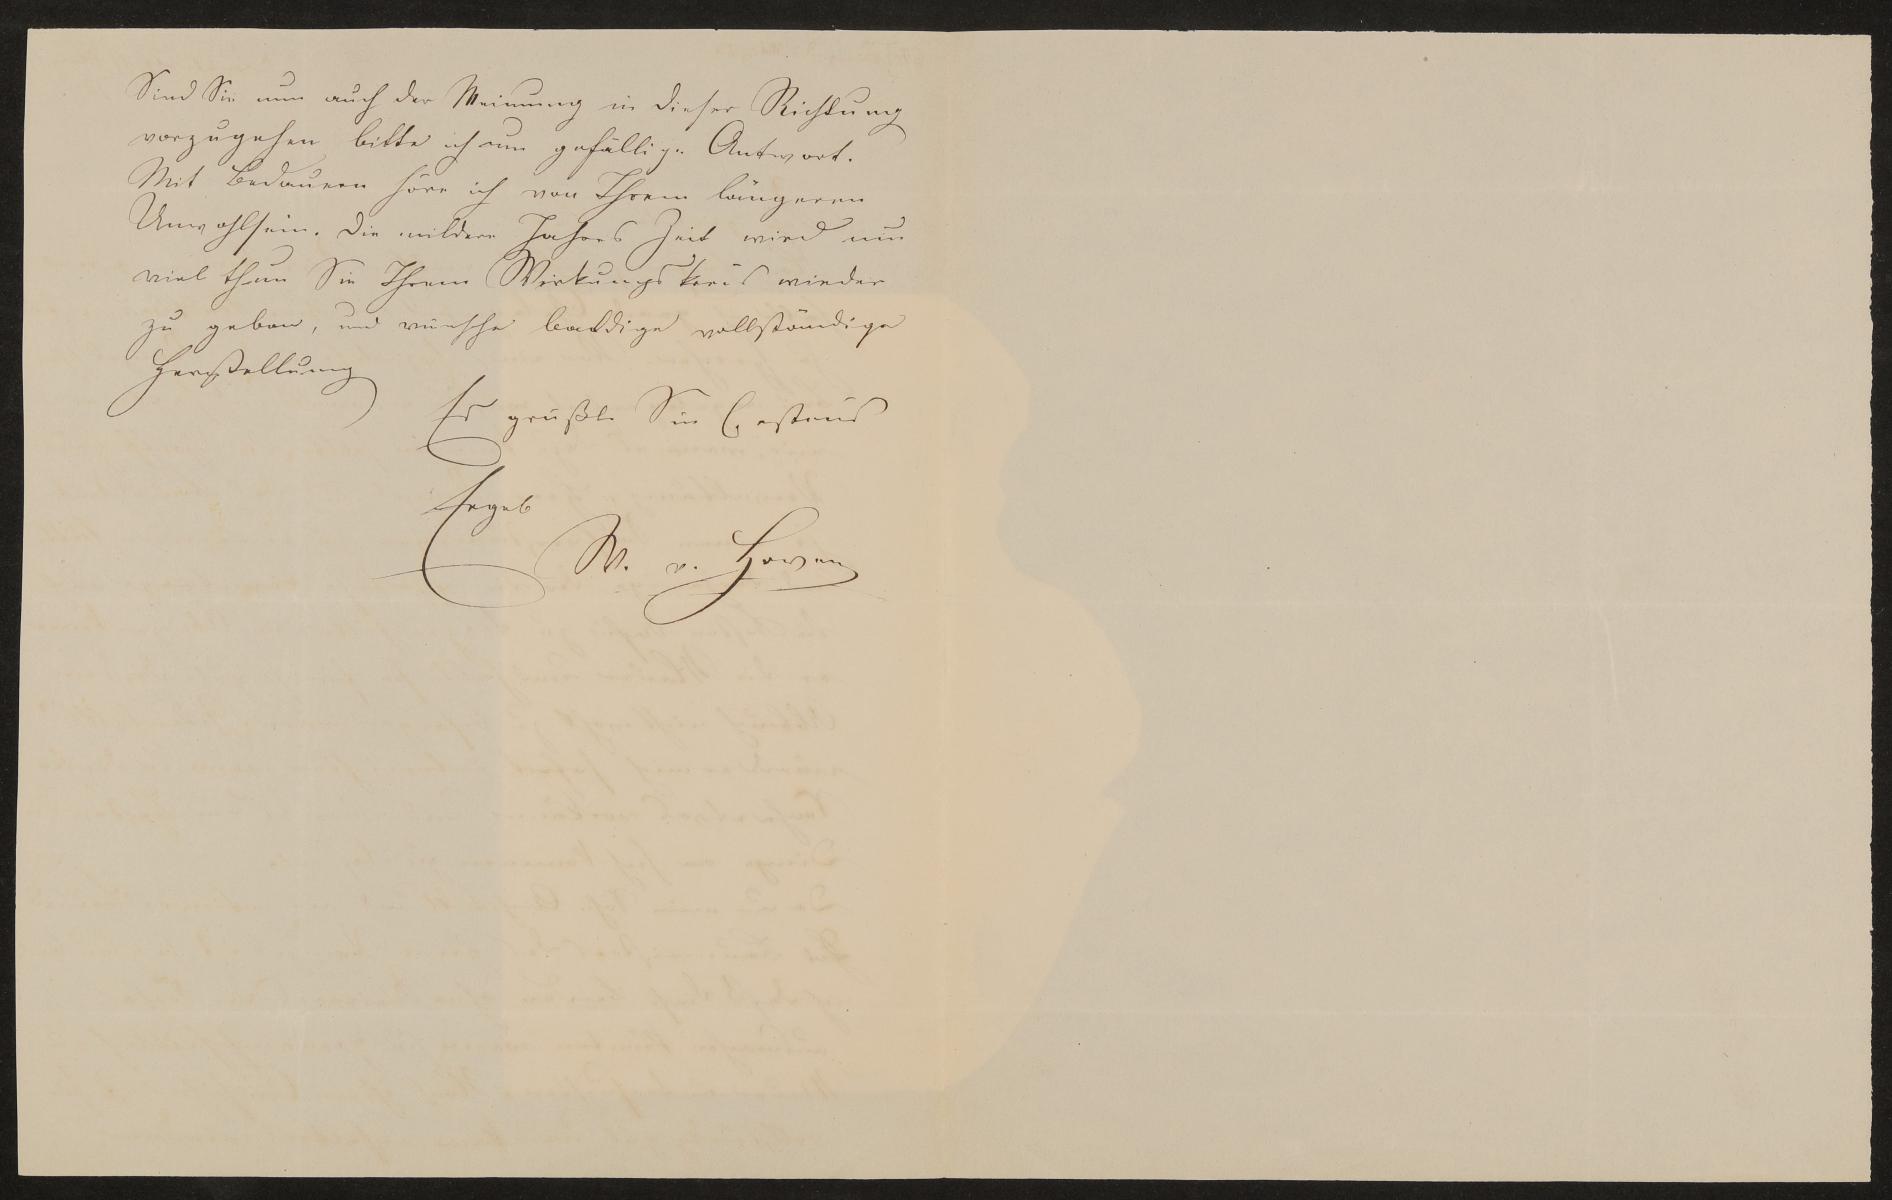 Sind Sie nun auch der Meinung in dieser Richtung
vorzugehen bitte ich um gefällige Antwort.
Mit Bedauern höre ich von Ihrem längeren
Unwohlsein. Die mildere Jahres Zeit wird nun
viel thun Sie Ihrem Wirkungskreis wieder
zu geben, und wünsche baldige vollständige
Herstellung
Es grüßt Sie bestens
Ergeb
W. v. Hoven